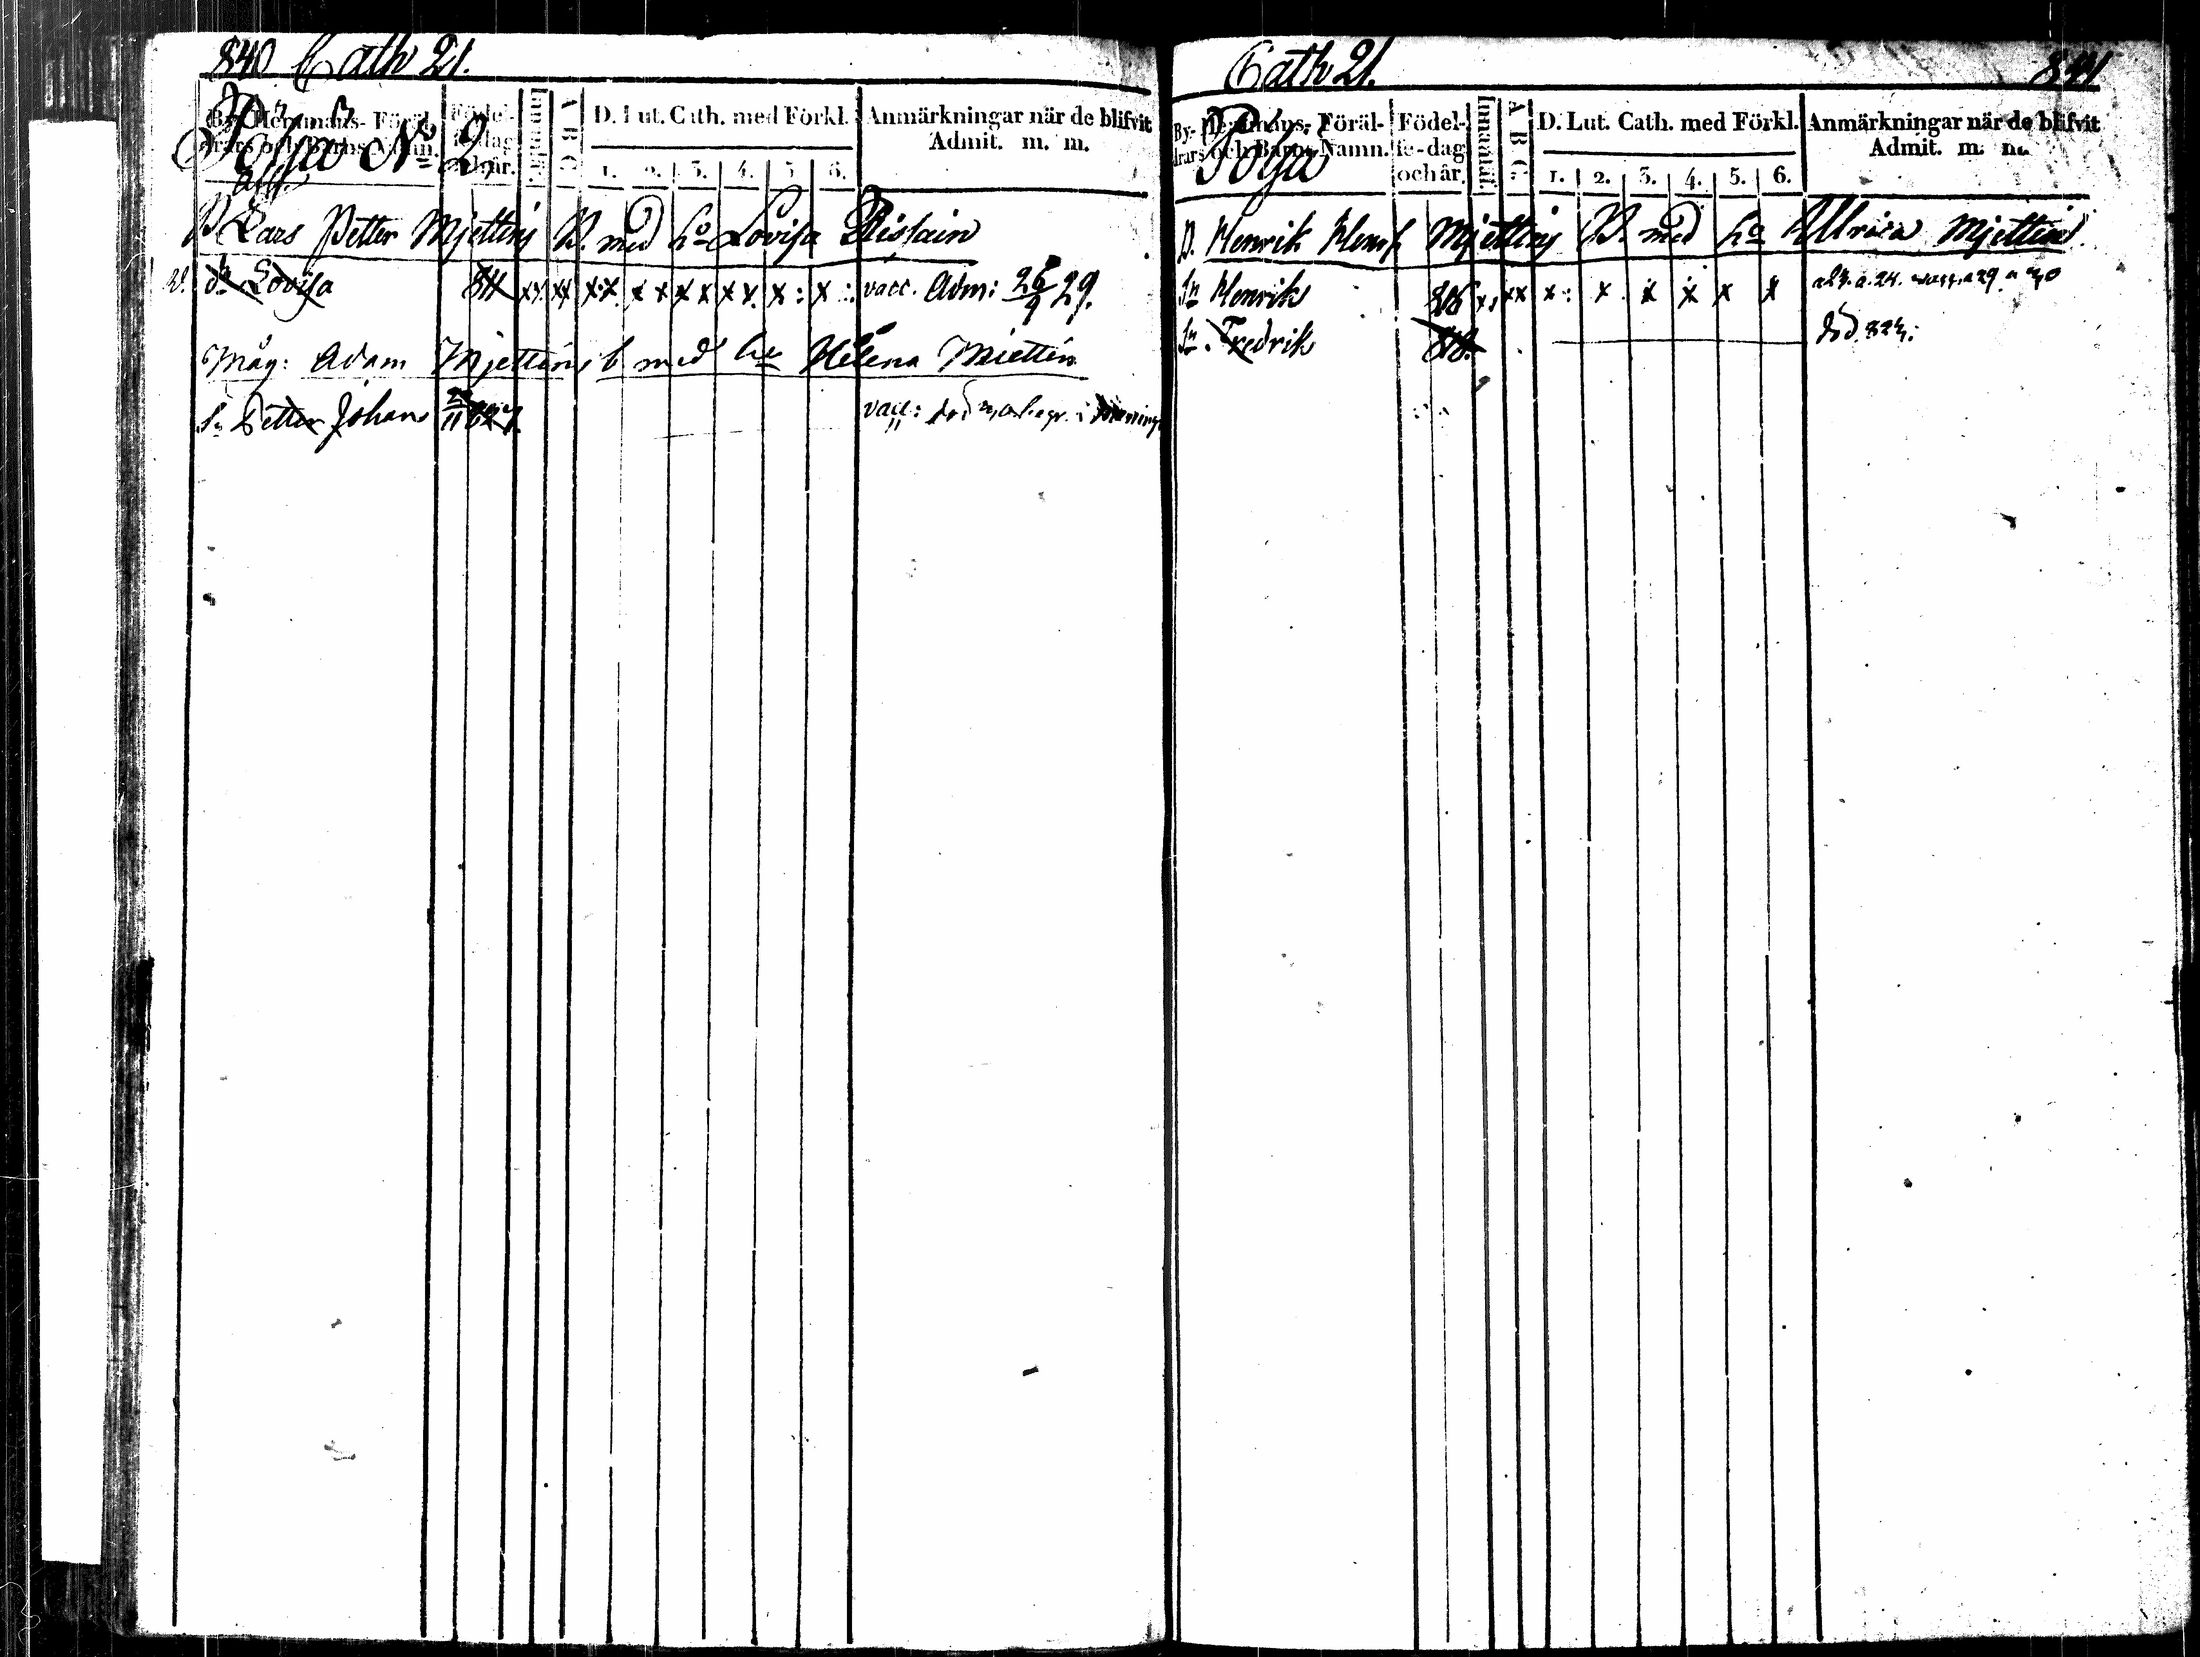 840 Cath 21.
By- Hemmans- Föräl-
drars och Barns Namn.
Födel-
se-dag
och år.
Inneantal.
A B C
D. Lut. Cath. med Förkl.
1. 2. 3. 4. 5. 6.
Anmärkningar när de blifvit
Admit. m. m.
Pölja No 2
B Lars Petter Mjettinj B. med ho Lovisa Pistain
dr Lovisa 811 xx xx x.x. x x x x x x. x : x : vacc. Adm: 26/9 29.
Måg: Adam Mjettinj b med hu Helena Miettin
Sn Petter Johan 827. vacc:
Cath 21. 841
By- Hemmans- Föräl-
drars och Barns Namn.
Födel-
se-dag
och år.
Inneantal.
A B C
D. Lut. Cath. med Förkl.
1. 2. 3. 4. 5. 6.
Anmärkningar när de blifvit
Admit. m. m.
Pölja
B. Henrik Henr Mjettinj B. med ho Ulrica Mjettin
Sn Henrik 816 x x xx x : x . x x x x a 24. a 29 a 30
Sn. Fredrik 818. död 823.